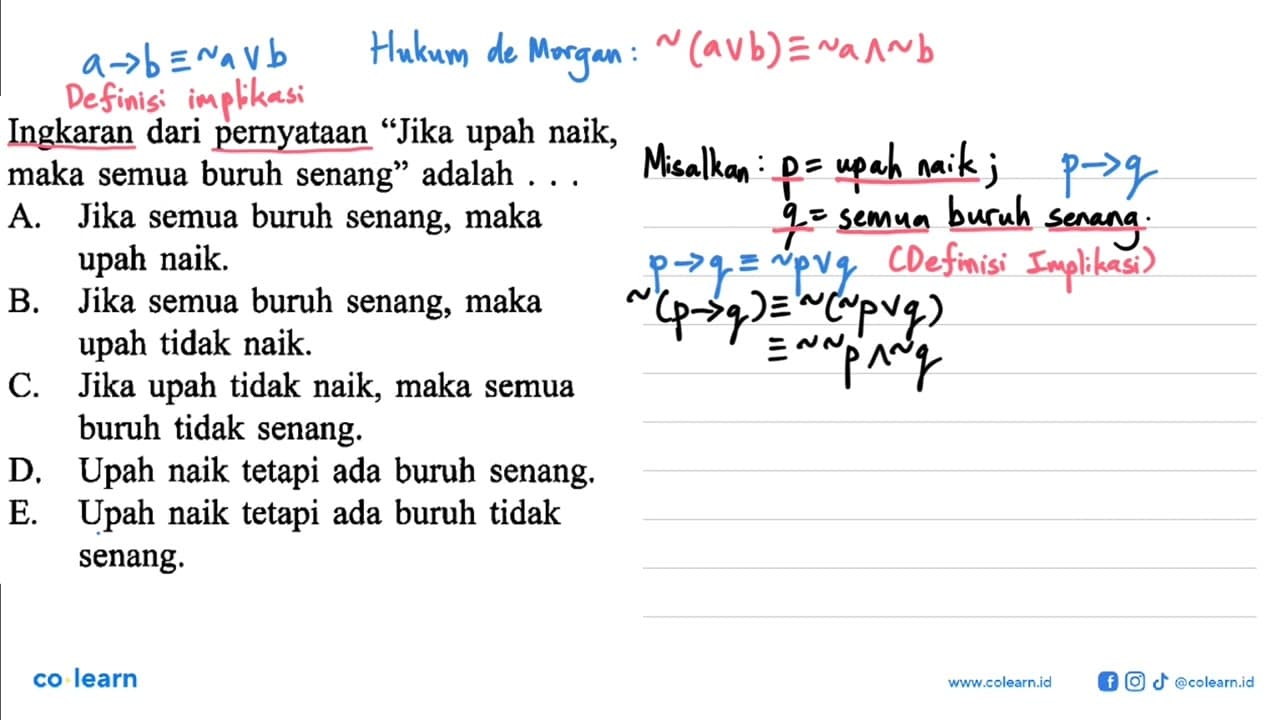 a→b≡~a∨b
Hukum de Morgan: ~(a∨b)≡~a∧~b
Definisi implikasi
Ingkaran dari pernyataan “Jika upah naik,
maka semua buruh senang” adalah . . .
A. Jika semua buruh senang, maka
upah naik.
B. Jika semua buruh senang, maka
upah tidak naik.
C. Jika upah tidak naik, maka semua
buruh tidak senang.
D. Upah naik tetapi ada buruh senang.
E. Upah naik tetapi ada buruh tidak
senang.
Misalkan: p = upah naik; p→q
q = semua buruh senang.
p→q≡~p∨q (Definisi Implikasi)
~(p→q)≡~(~p∨q)
≡~~p∧~q
co learn
www.colearn.id
@colearn.id